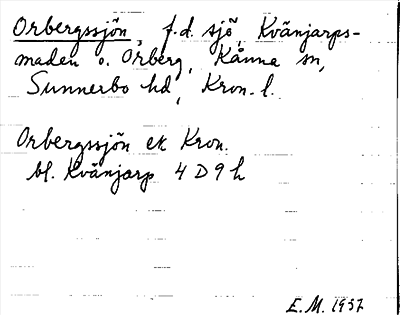 Orbergssjön, f.d. sjö, Kvänjarps-
maden o. Orberg, Kånna sn,
Sunnerbo hd, Kron. l.
Orbergssjön ek Kron.
bl. Kvänjarp 4 D 9 h
E. M. 1937